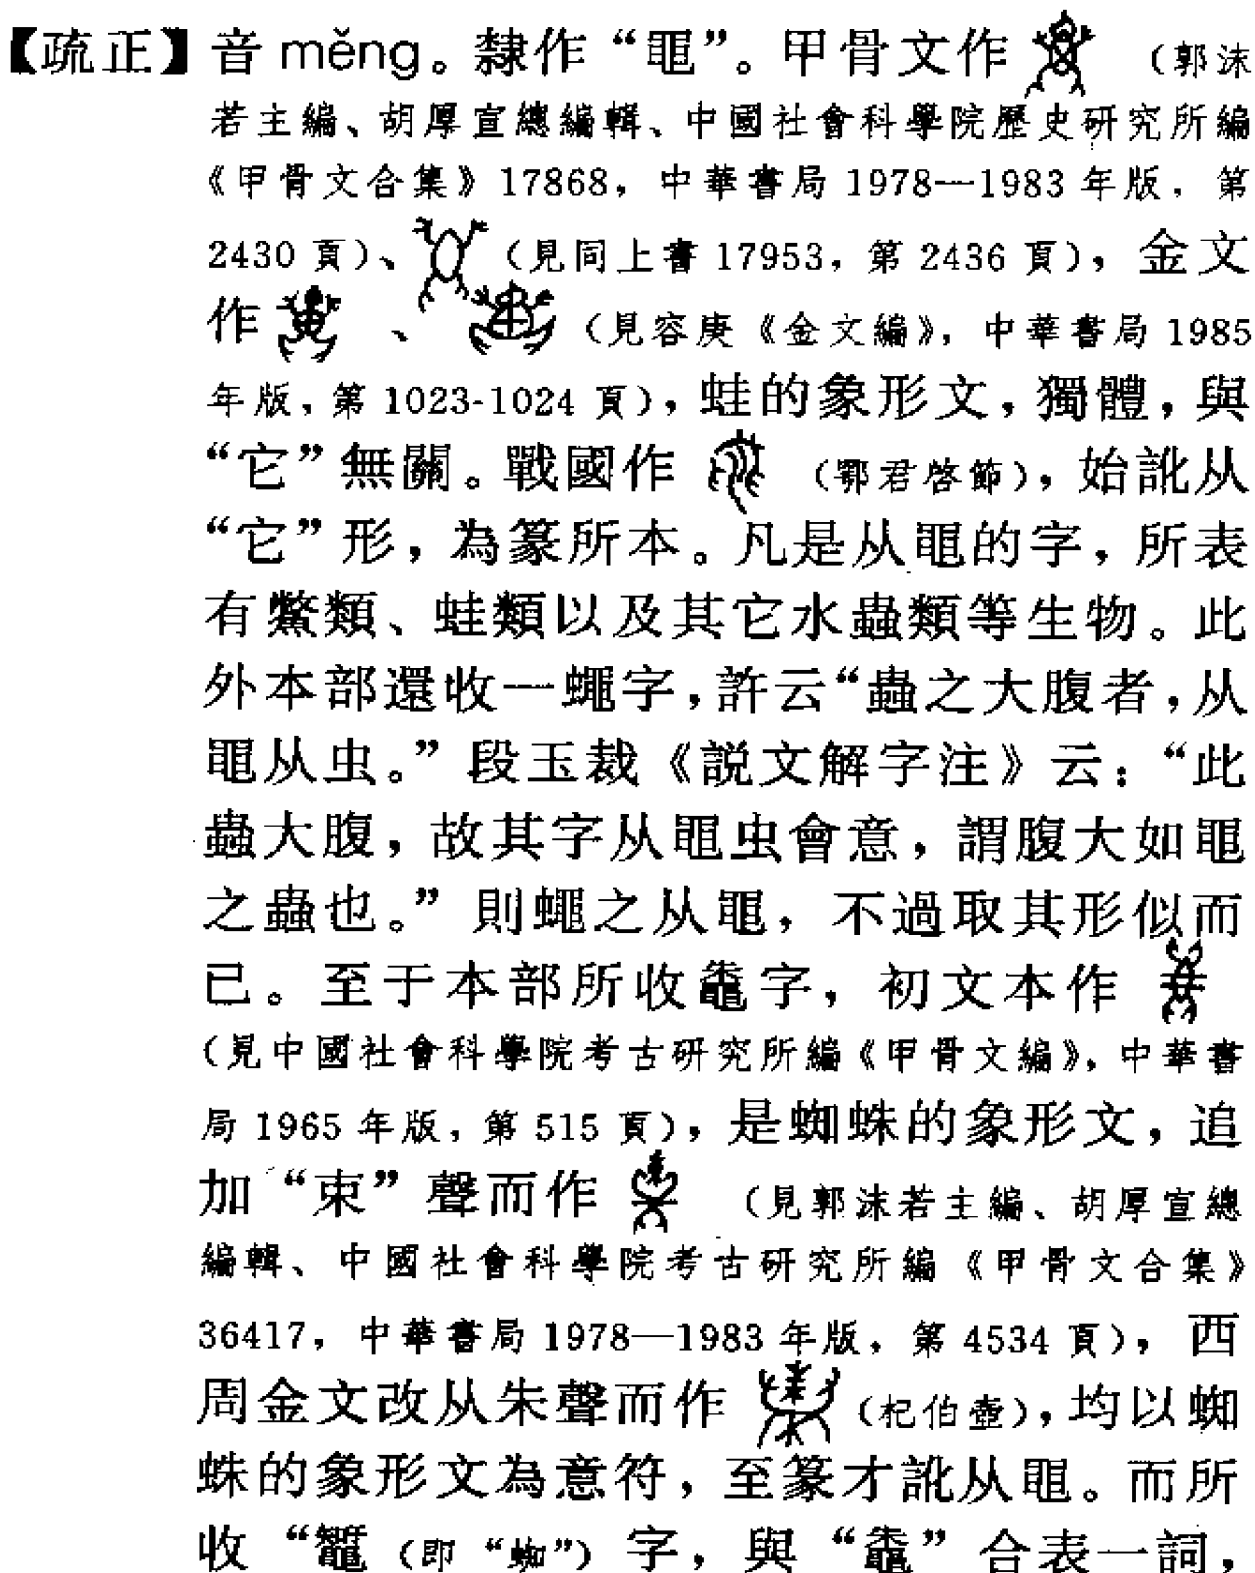 【疏正】音 měng。隸作“黽”。甲骨文作 （郭沫
若主編、胡厚宣總編輯、中國社會科學院歷史研究所編
《甲骨文合集》17868，中華書局 1978—1983 年版，第
2430 頁）、 （見同上書 17953，第 2436 頁），金文
作 、 （見容庚《金文編》，中華書局 1985
年版，第 1023-1024 頁），蛙的象形文，獨體，與
“它”無關。戰國作 （鄂君啓節），始訛从
“它”形，為篆所本。凡是从黽的字，所表
有鱉類、蛙類以及其它水蟲類等生物。此
外本部還收一蠅字，許云“蟲之大腹者，从
黽从虫。”段玉裁《説文解字注》云：“此
蟲大腹，故其字从黽虫會意，謂腹大如黽
之蟲也。”則蠅之从黽，不過取其形似而
已。至于本部所收鼄字，初文本作
（見中國社會科學院考古研究所編《甲骨文編》，中華書
局 1965 年版，第 515 頁），是蜘蛛的象形文，追
加“束”聲而作 （見郭沫若主編、胡厚宣總
編輯、中國社會科學院考古研究所編《甲骨文合集》
36417，中華書局 1978—1983 年版，第 4534 頁），西
周金文改从朱聲而作 （杞伯壺），均以蜘
蛛的象形文為意符，至篆才訛从黽。而所
收“鼅（即“蜘”）字，與“鼄”合表一詞，